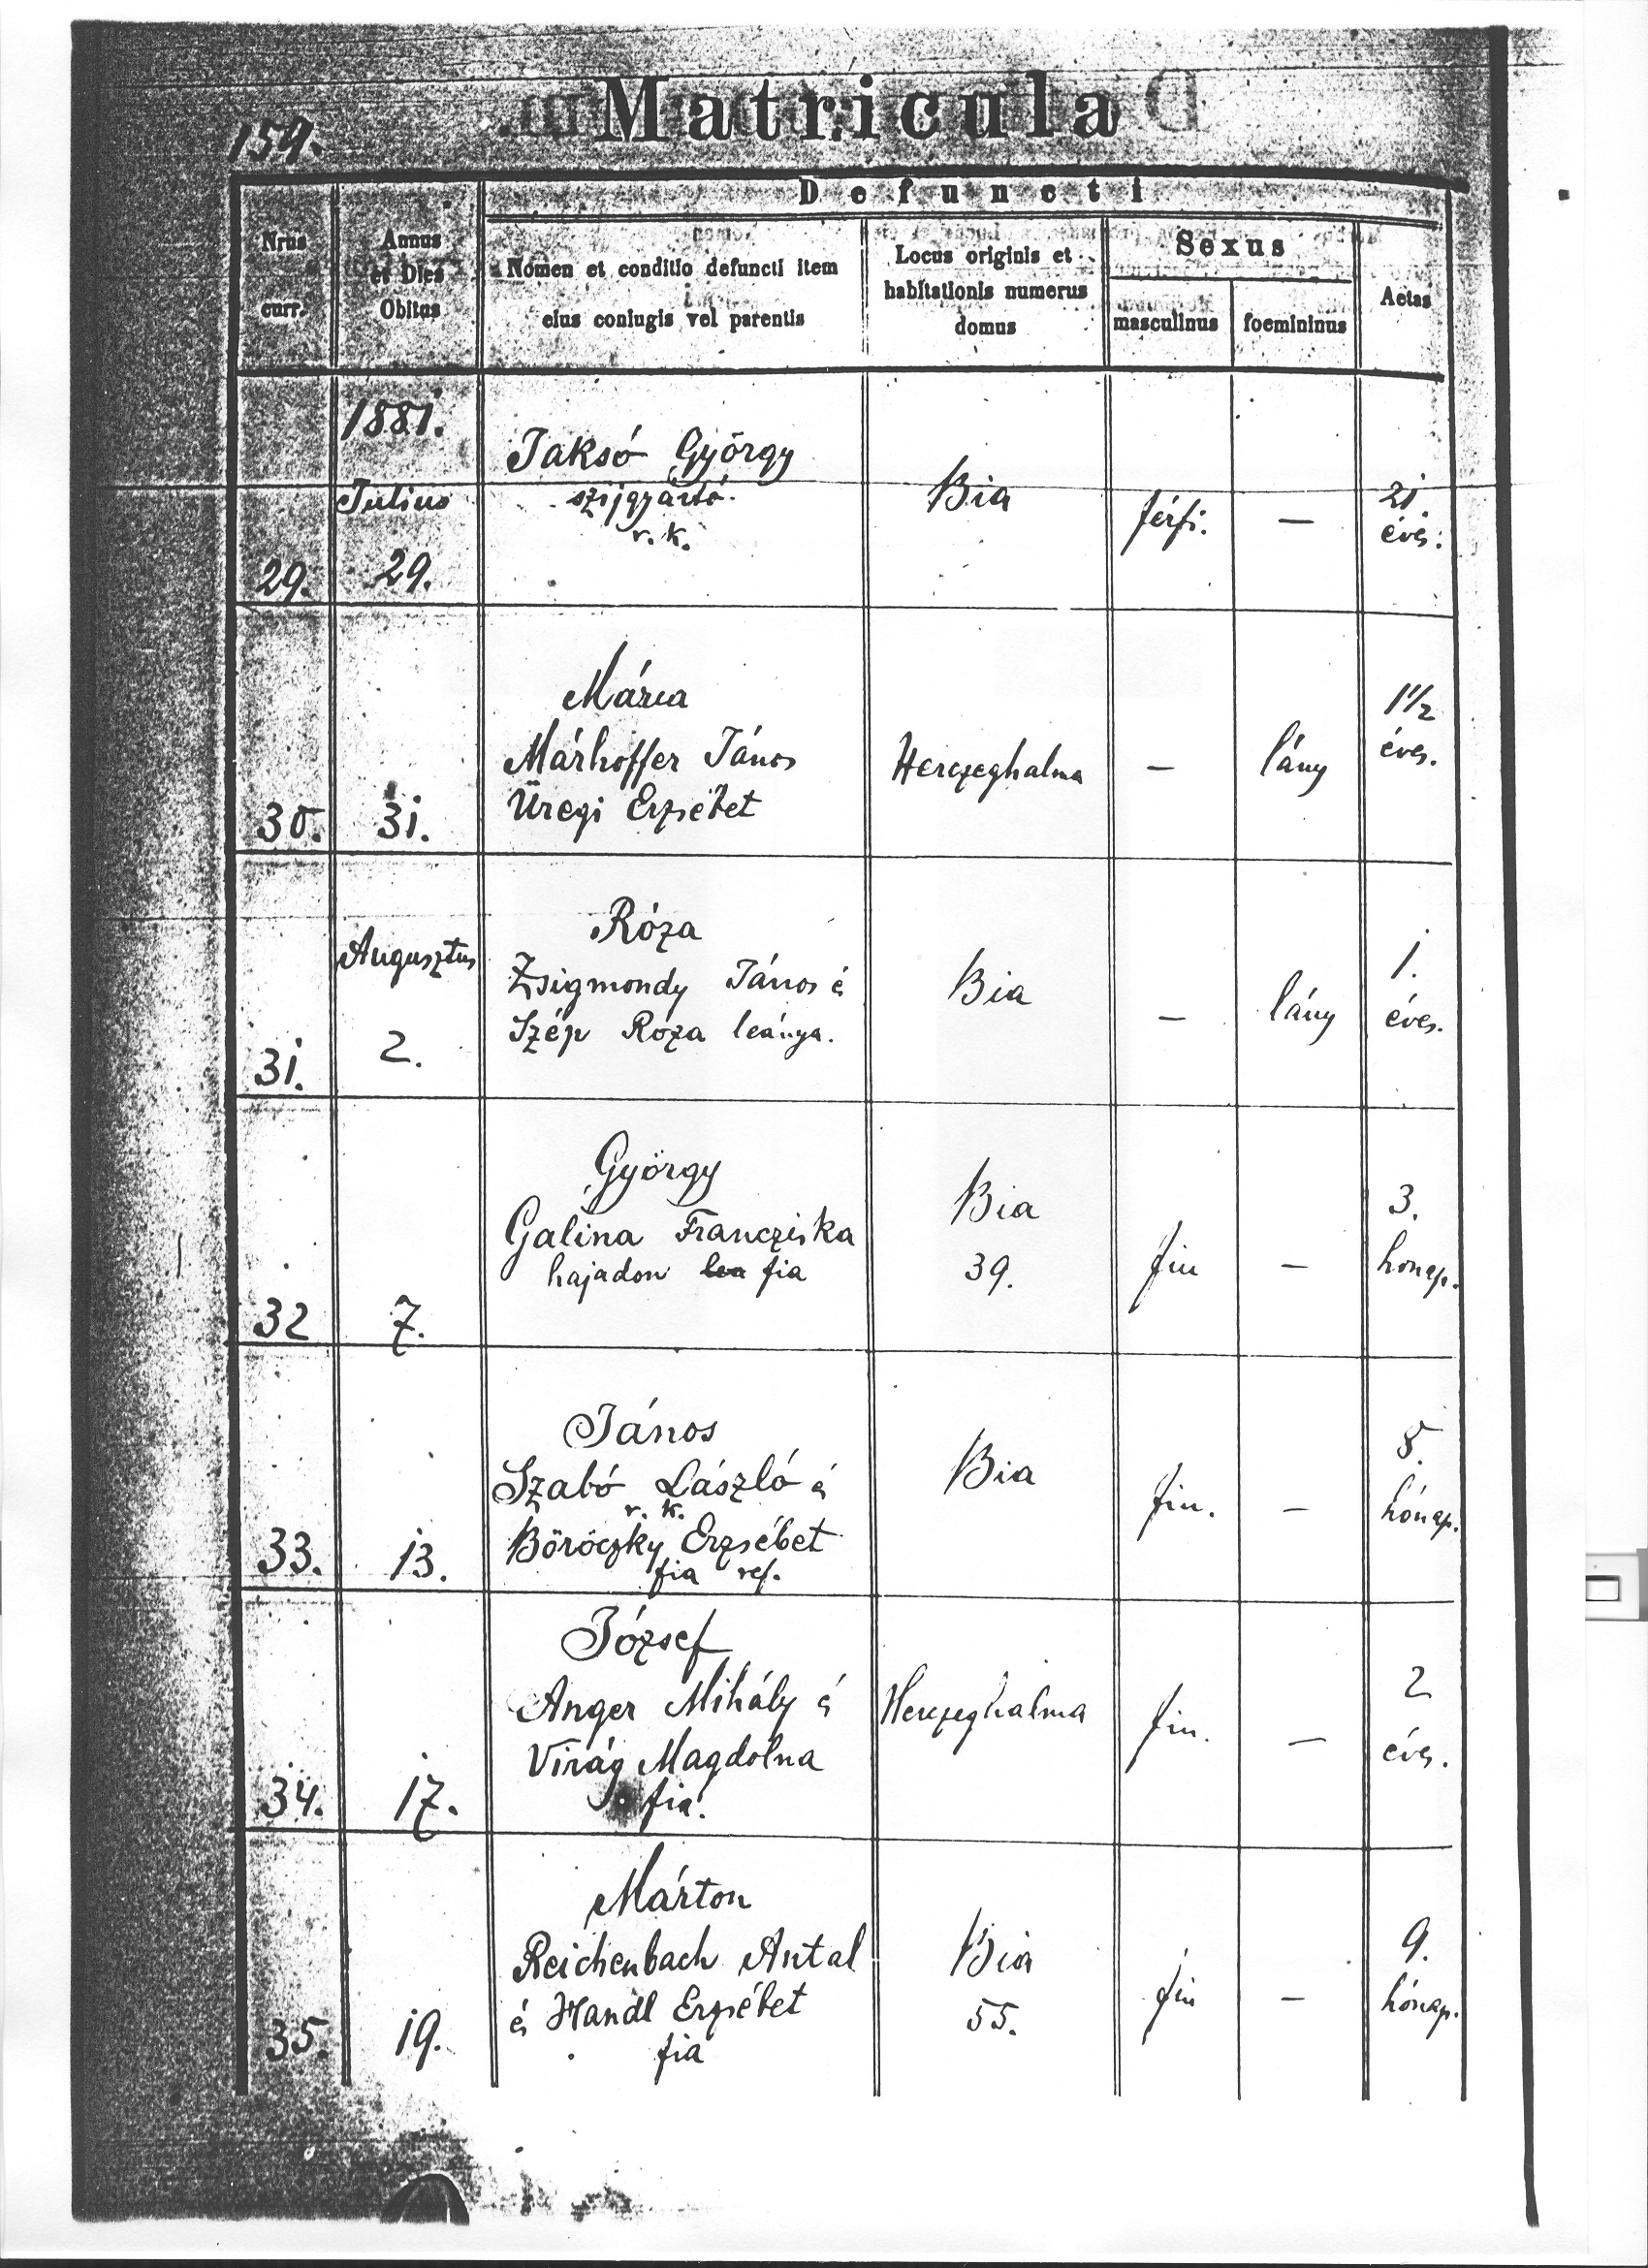 Matricula
159.
Defuncti
Nrus curr.
Annus et Dies Obitus
Nomen et conditio defuncti item eius coniugis vel parentis
Locus originis et habitationis numerus domus
Sexus
masculinus
foemininus
Aetas
1881.
Jaksó György
Julius
szijgyártó.
Bia
férfi.
—
21.
éves.
r. k.
29.
29.
Mária
Márhoffer János
Herczeghalma
—
lány
1 1/2
éves.
Üregi Erzsébet
30.
31.
Róza
Augusztus
Zsigmondy János és
Bia
—
lány
1.
éves.
Szép Roza leánya.
31.
2.
György
Galina Francziska
Bia
39.
fiu
—
3.
hónap.
hajadon lea fia
32
7.
János
Szabó László és
r. k.
Bia
fiu.
—
8.
hónap.
Böröczky Erzsébet
fia ref.
33.
13.
József
Anger Mihály és
Herczeghalma
fiu.
—
2
éves.
Virág Magdolna
fia.
34.
17.
Márton
Reichenbach Antal
Bia
55.
fiu
—
9.
hónap.
és Handl Erzsébet
fia
35.
19.